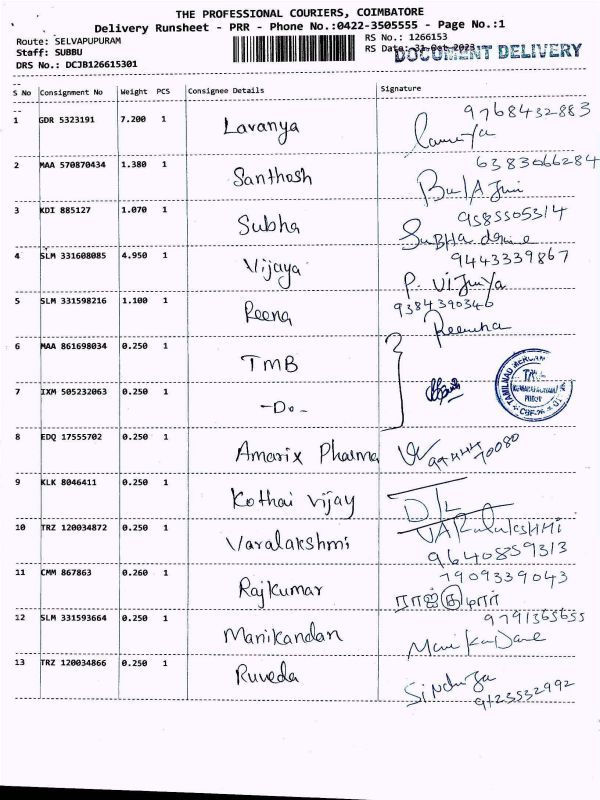 THE PROFESSIONAL COURIERS, COIMBATORE
Delivery Runsheet - PRR - Phone No.:0422-3505555 - Page No.:1
Route: SELVAPUPURAM RS No.: 1266153
Staff: SUBBU RS Date: 31-Oct-2023
DOCUMENT DELIVERY
DRS No.: DCJB126615301
S No Consignment No Weight PCS Consignee Details Signature
9768432883
1 GDR 5323191 7.200 1 Lavanya
6383066284
2 MAA 570870434 1.380 1 Santhosh
9585505314
3 KDI 885127 1.070 1 Subha
9443339867
4 SLM 331608085 4.950 1 Vijaya P. Vijaya
9384390346
5 SLM 331598216 1.100 1 Reena
6 MAA 861698034 0.250 1 TMB
7 IXM 505232063 0.250 1 -Do-
8 EDQ 17555702 0.250 1 Amarix Pharma 70080
9 KLK 8046411 0.250 1 Kothai Vijay
10 TRZ 120034872 0.250 1 Varalakshmi VARalakshmi
9640859313
7909339043
11 CMM 867863 0.260 1 Rajkumar ராஜ்குமார்
9791365655
12 SLM 331593664 0.250 1 Manikandan
13 TRZ 120034866 0.250 1 Ruveda Sinduja
9123532992